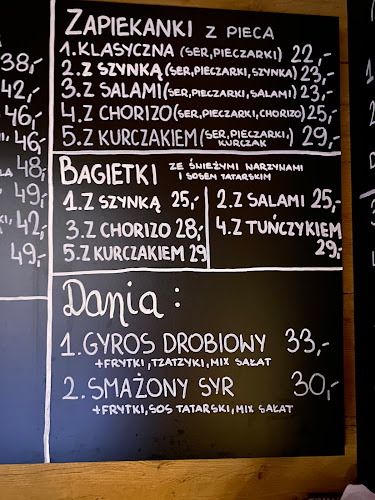 38,-
42,-
46,-
46,-
48,-
49,-
42,-
49,-
ZAPIEKANKI Z PIECA
1.KLASYCZNA (SER,PIECZARKI) 22,-
2.Z SZYNKĄ (SER,PIECZARKI,SZYNKA) 23,-
3.Z SALAMI (SER,PIECZARKI,SALAMI) 23,-
4.Z CHORIZO (SER,PIECZARKI,CHORIZO) 25,-
5.Z KURCZAKIEM (SER,PIECZARKI, KURCZAK 29,-
BAGIETKI ZE ŚWIEŻYMI WARZYWAMI
I SOSEM TATARSKIM
1.Z SZYNKĄ 25,-
2.Z SALAMI 25,-
3.Z CHORIZO 28,-
4.Z TUŃCZYKIEM
29,-
5.Z KURCZAKIEM 29
Dania :
1.GYROS DROBIOWY 33,-
+FRYTKI, TZATZYKI, MIX SAŁAT
2.SMAŻONY SYR 30,-
+FRYTKI, SOS TATARSKI, MIX SAŁAT